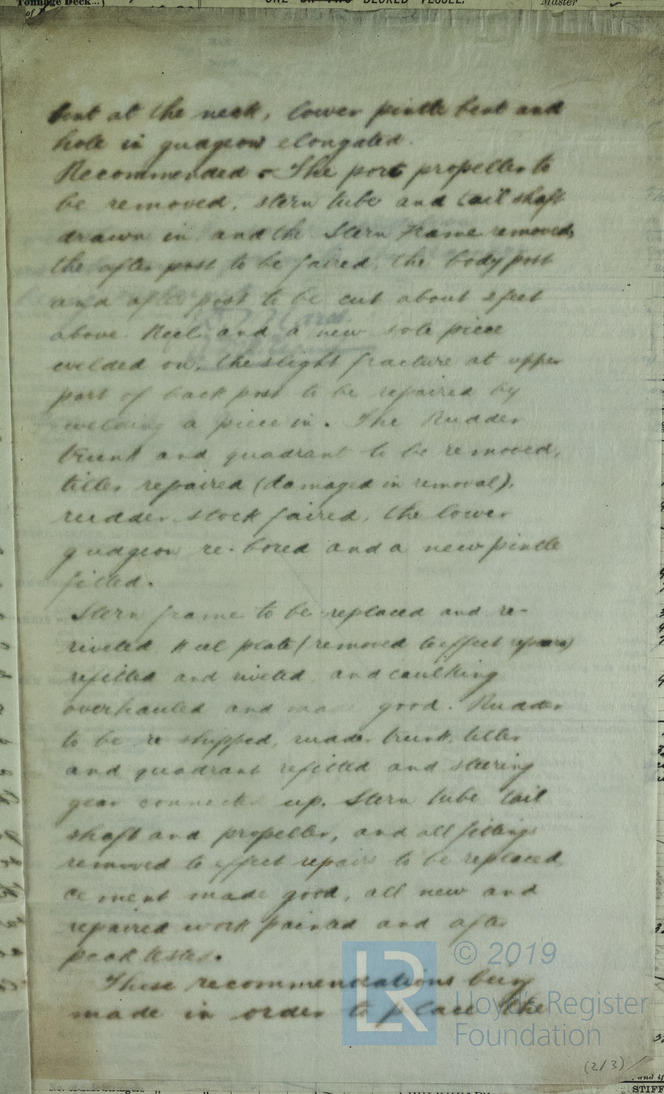 Tonnage Deck...)
of
ONE OR TWO DECKED VESSEL.
Master
bent at the neck, lower pintle bent and
hole in gudgeon elongated.
Recommended - The port propeller to
be removed, stern tube and tail shaft
drawn in and the Stern Frame removed,
the after post to be faired, the body post
and after post to be cut about 2 feet
above Keel and a new sole piece
welded on, the slight fracture at upper
part of back post to be repaired by
welding a piece in. The Rudder
trunk and quadrant to be removed,
tiller repaired (damaged in removal),
rudder stock faired, the lower
gudgeon re-bored and a new pintle
fitted.
Stern frame to be replaced and re-
riveted, Keel plate (removed to effect repairs)
refitted and riveted and caulking
overhauled and made good. Rudder
to be re shipped, rudder trunk, tiller
and quadrant refitted and steering
gear connected up. Stern tube tail
shaft and propeller, and all fittings
removed to effect repairs to be replaced
cement made good, all new and
repaired work painted and after
peak tested.
These recommendations being
made in order to place the
© 2019
Lloyd's Register
Foundation
LR
(2/3)
STIFF